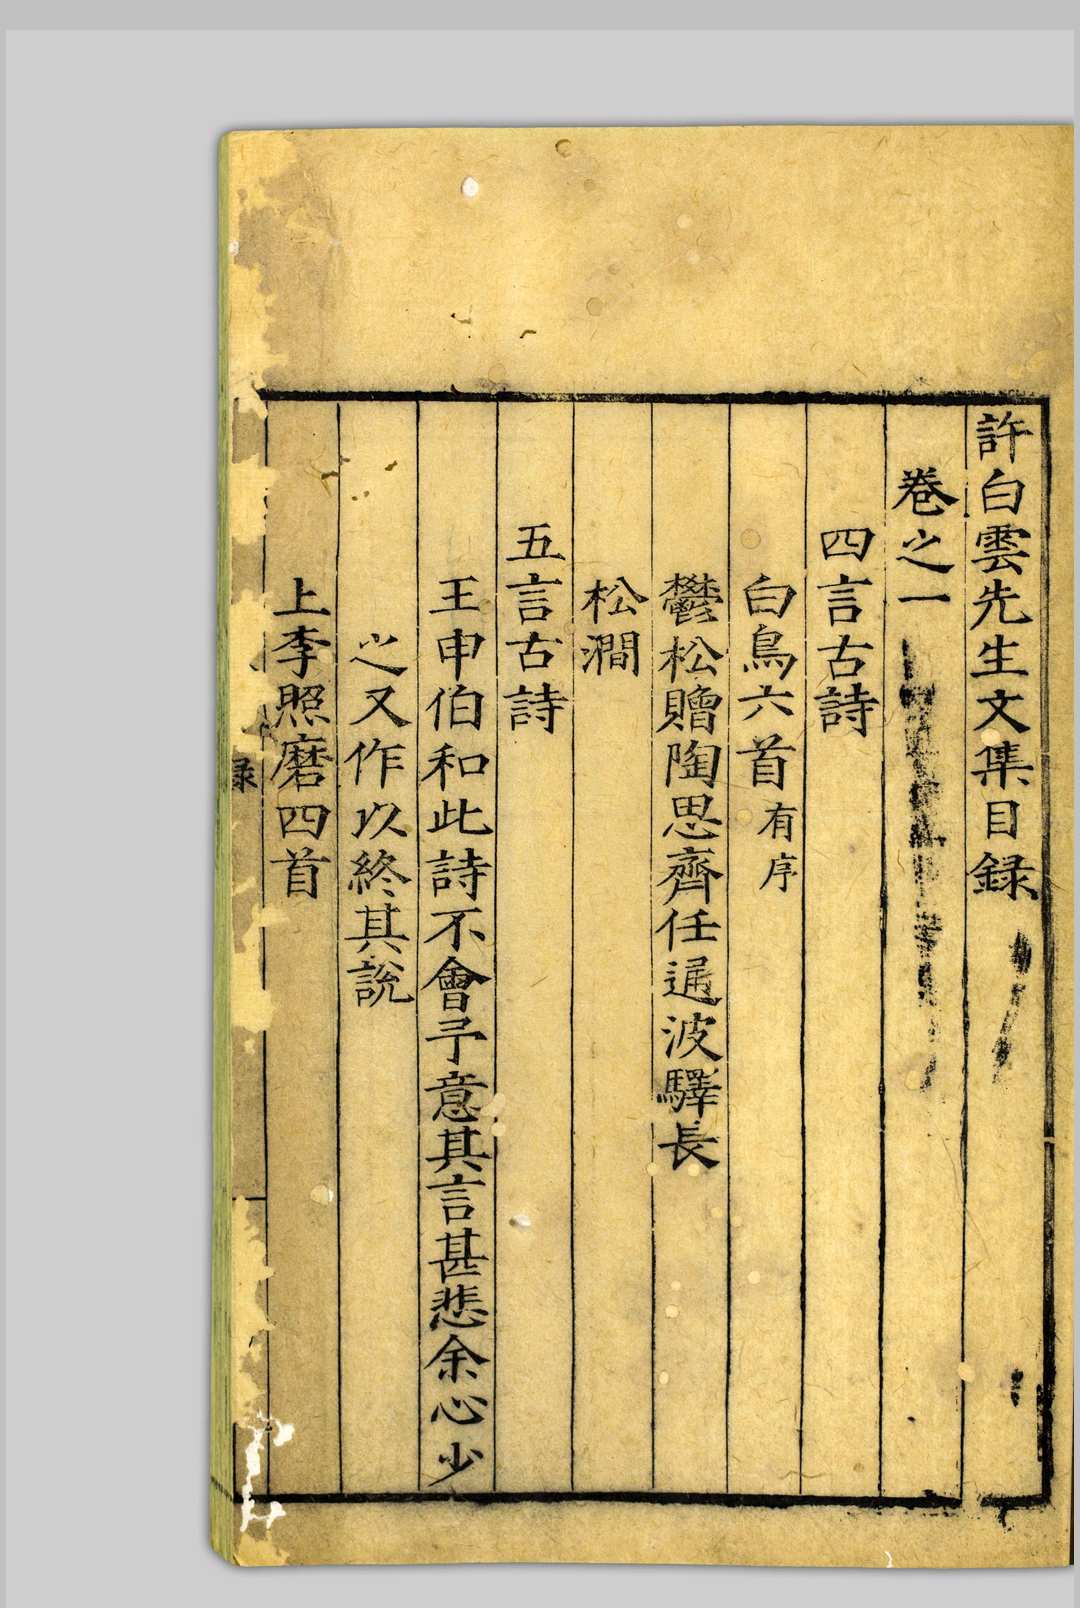 許白雲先生文集目録
卷之一
四言古詩
白鳥六首有序
鬱松贈陶思齊任通波驛長
松澗
五言古詩
王申伯和此詩不會予意其言甚悲余心少
之又作以終其說
上李照磨四首
録